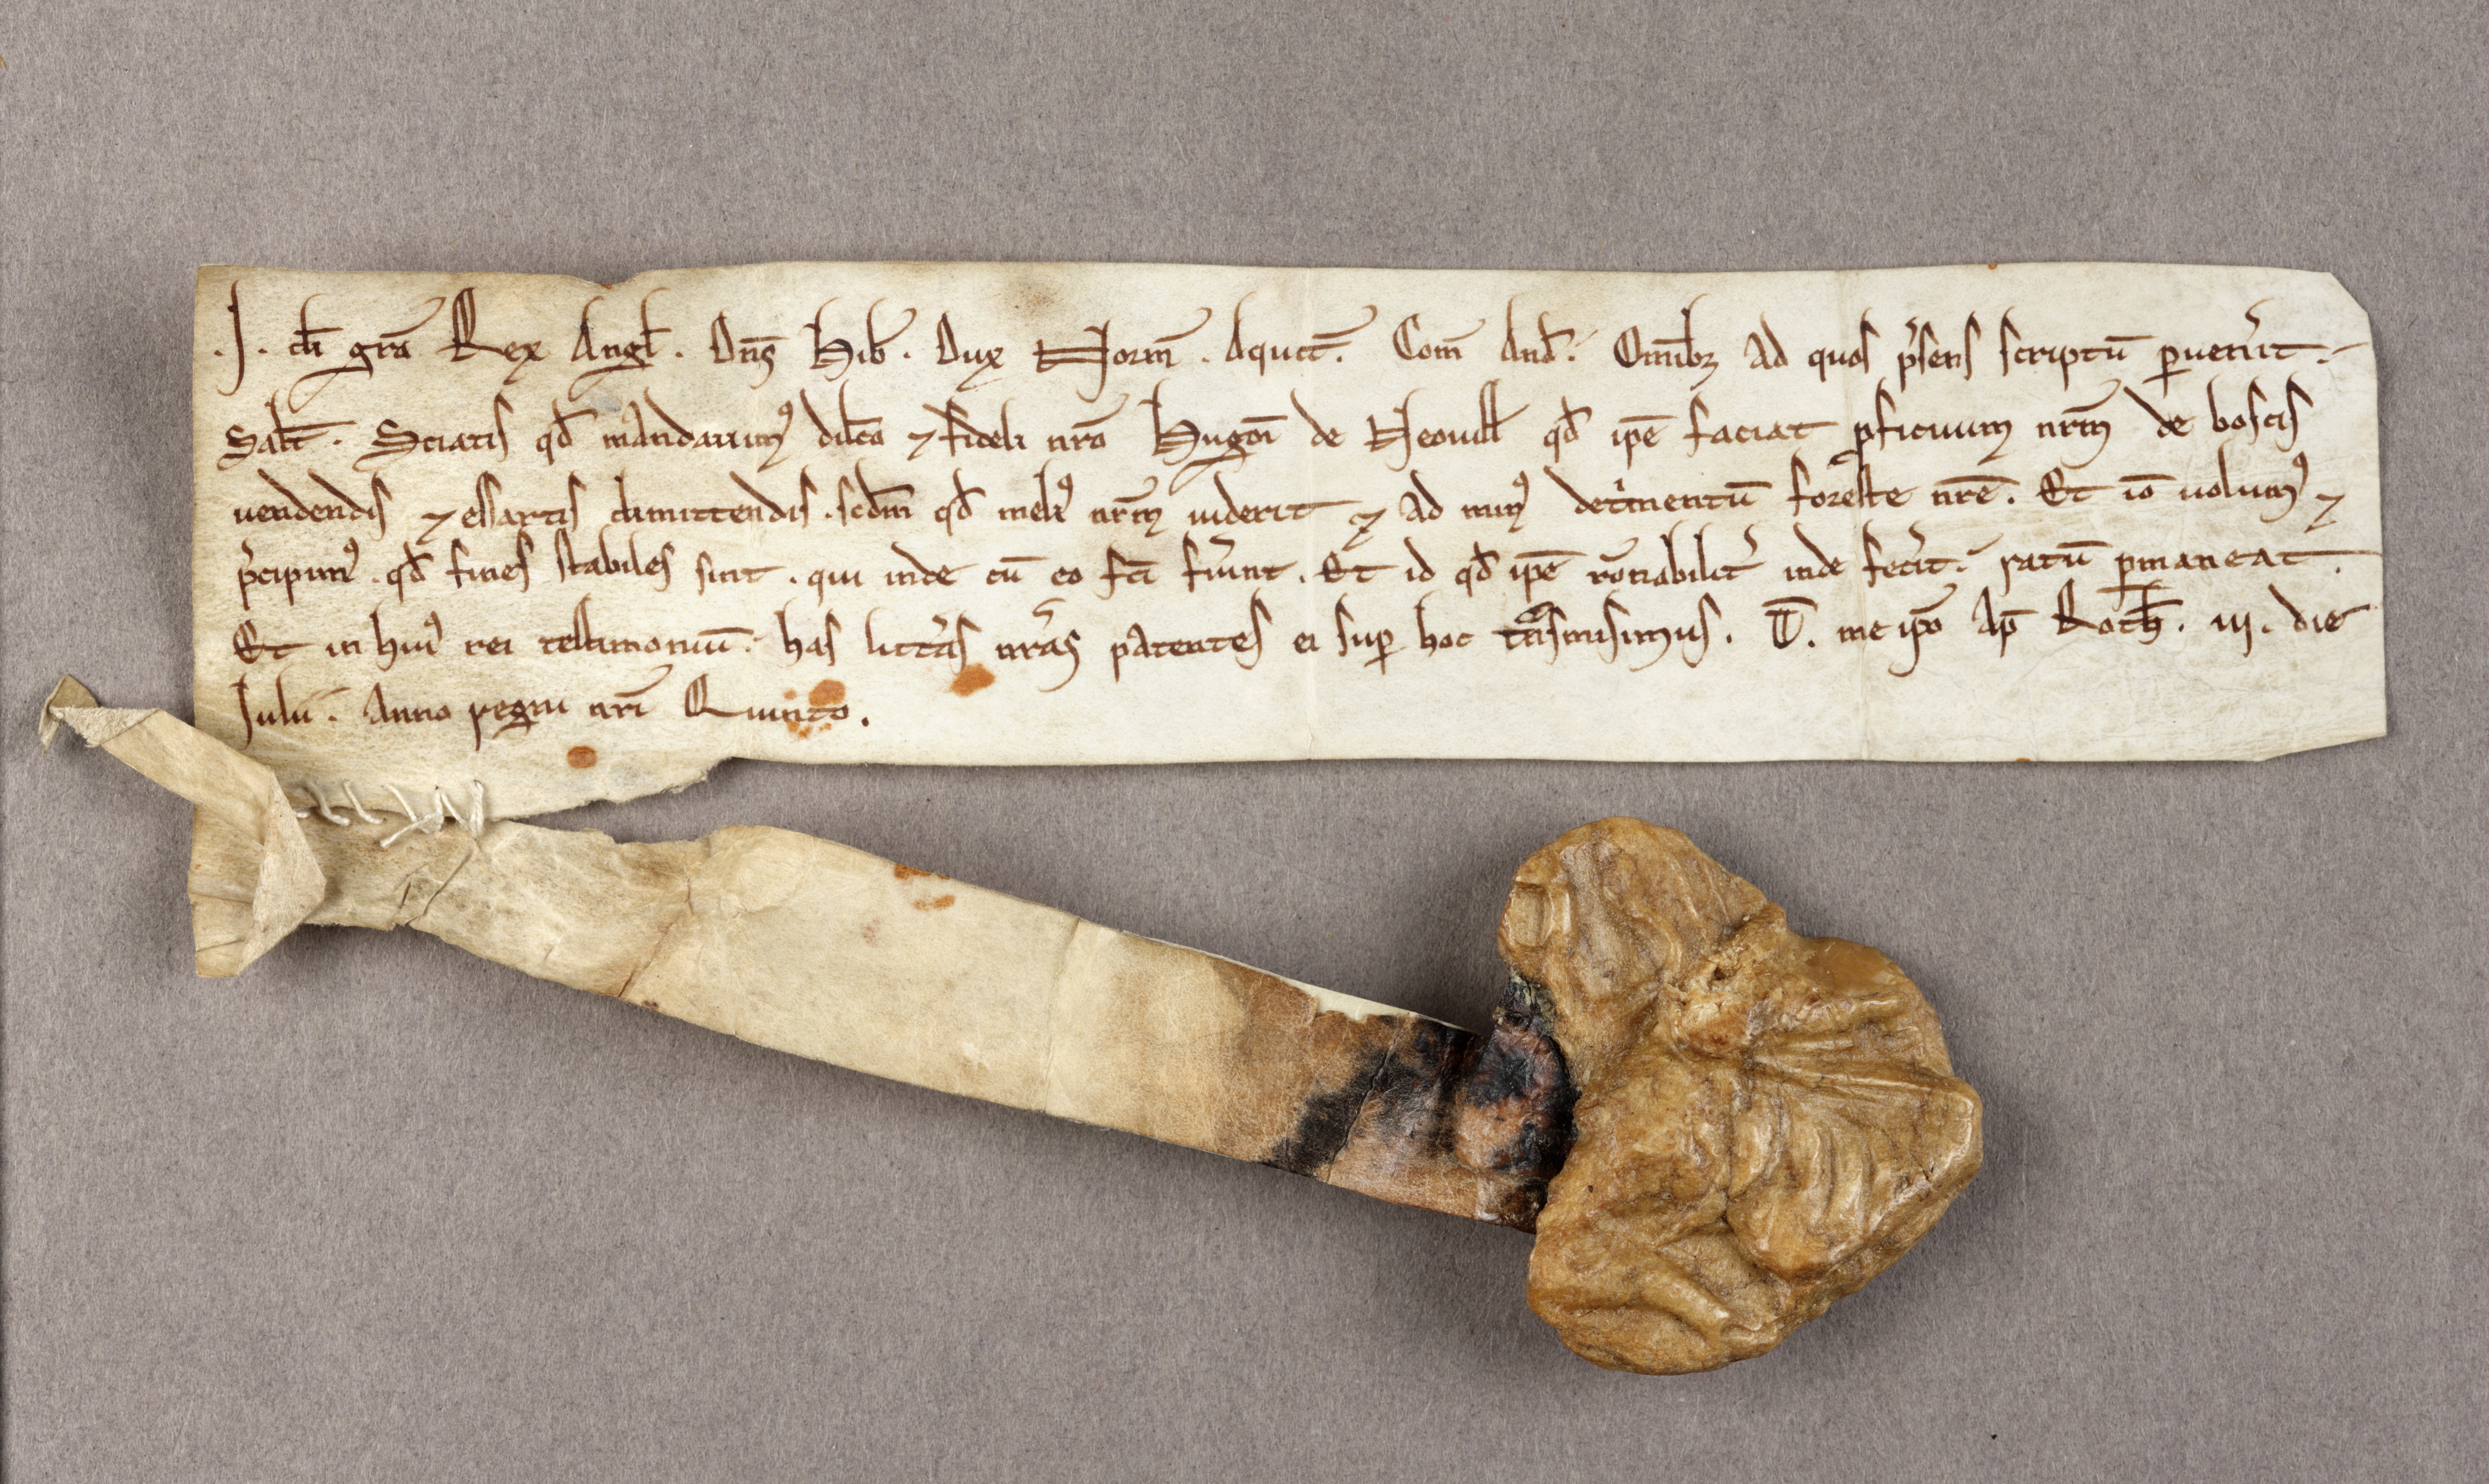 .J. di gr̄a Rex Angl̄. Dn̄s Hib̄. Dux Norm̄. Aquit̄. Com̄ And̄. Omĩbꝫ ad quos p̾sens scriptū ꝑuen̾it.
Salt̄. Sciatis qđ mandauimꝰ dilc̄o ⁊ fideli nr̄o Hugoñ de Neouill̄ qđ ip̄e faciat ꝓficuum nr̄m de boscis
uendendis ⁊ essartis dimittendis. scđm qđ melịꝰ nr̄m uiderit ⁊ ad minꝰ det̾mentū foreste nr̄e. Et iō uolumꝰ ⁊
p̾cipimꝰ. qđ fines stabiles sint. qui inde cū eo fc̄i fu̾int. Et id qđ ip̄e rōnabilit̾ inde fec̾it. ratū ꝑmaneat.
Et in huiꝰ rei testimoniū. has litt̾as nr̄as patentes ei suꝑ hoc tͣnsmisimus. T̄. me ip̄o Ap̄ Roth̄. iij. die
Julii. Anno regni nr̄i Quinto.